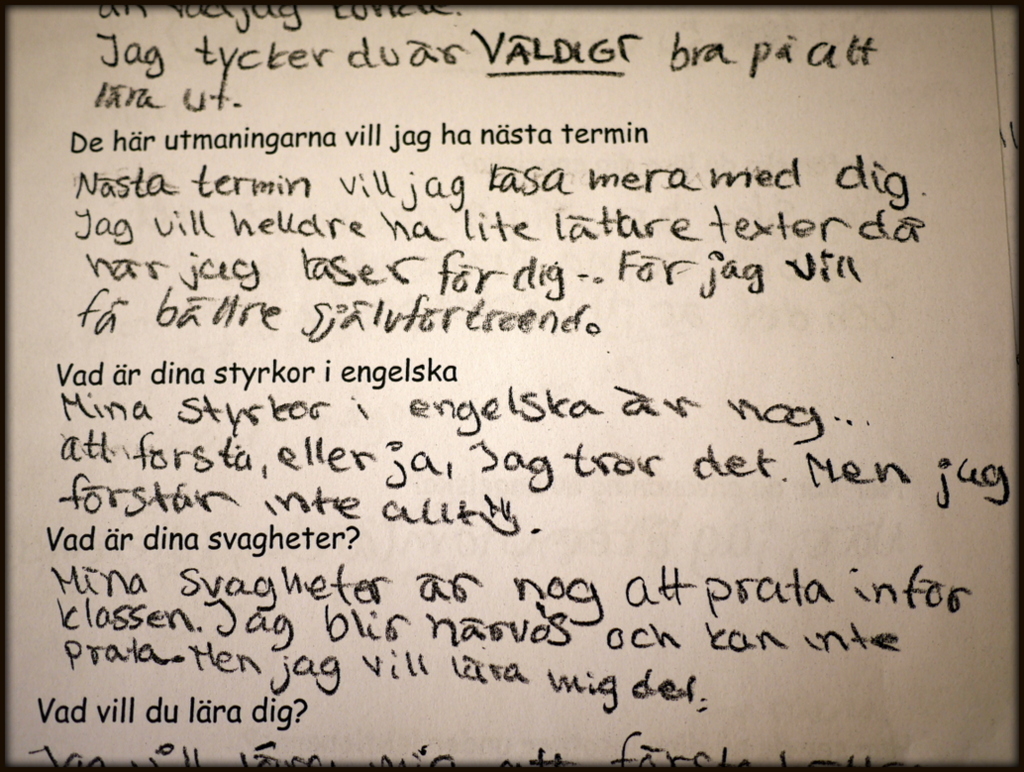 Jag tycker du är VÄLDIGT bra på att
lära ut.
De här utmaningarna vill jag ha nästa termin
Nästa termin vill jag läsa mera med dig.
Jag vill helldre ha lite lättare texter då
när jag läser för dig... För jag vill
få bättre självförtroende.
Vad är dina styrkor i engelska
Mina styrkor i engelska är nog...
att förstå, eller ja, Jag tror det. Men jag
förstår inte allt
Vad är dina svagheter?
Mina svagheter är nog att prata inför
klassen. Jag blir närvös och kan inte
prata. Men jag vill lära mig det.
Vad vill du lära dig?
Jag vill lära mig att